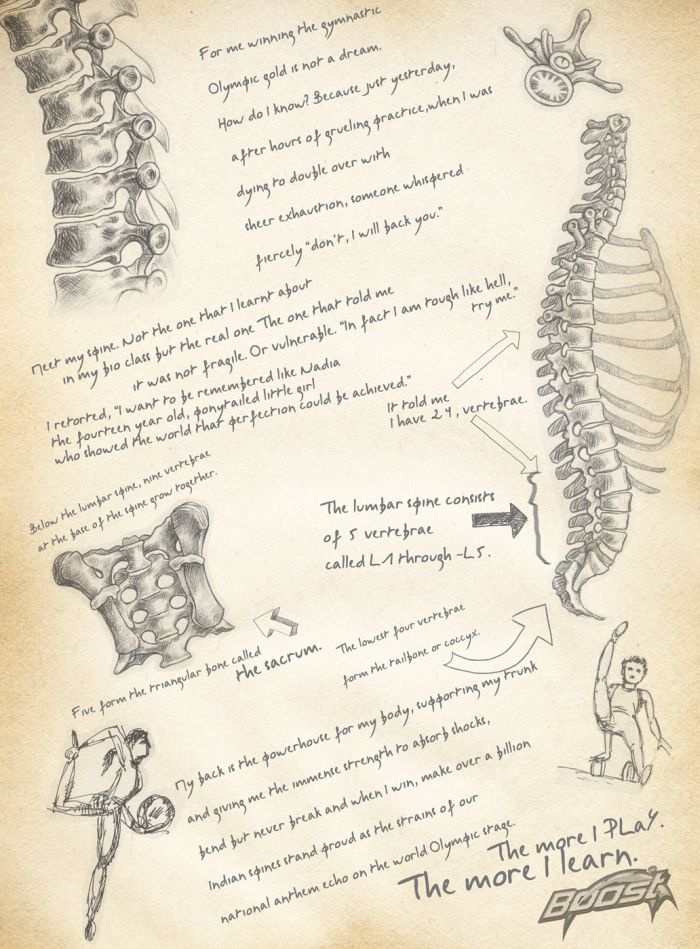 For me winning the gymnastic
Olympic gold is not a dream.
How do I know? Because just yesterday,
after hours of grueling practice,when I was
dying to double over with
sheer exhaustion, someone whispered
fiercely "don't, I will back you."
Meet my spine. Not the one that I learnt about
in my bio class but the real one The one that told me
it was not fragile. Or vulnerable. "In fact I am tough like hell,
try me."
I retorted, "I want to be remembered like Nadia
the fourteen year old, ponytailed little girl
who showed the world that perfection could be achieved."
It told me
I have 24, vertebrae.
Below the lumbar spine, nine vertebrae
at the base of the spine grow together.
The lumbar spine consists
of 5 vertebrae
called L1 through -L5.
Five form the triangular bone called
the sacrum.
The lowest four vertebrae
form the tailbone or coccyx.
My back is the powerhouse for my body, supporting my trunk
and giving me the immense strength to absorb shocks,
bend but never break and when I win, make over a billion
Indian spines stand proud as the strains of our
national anthem echo on the world Olympic stage.
The more I PLaY.
The more I learn.
BOOST